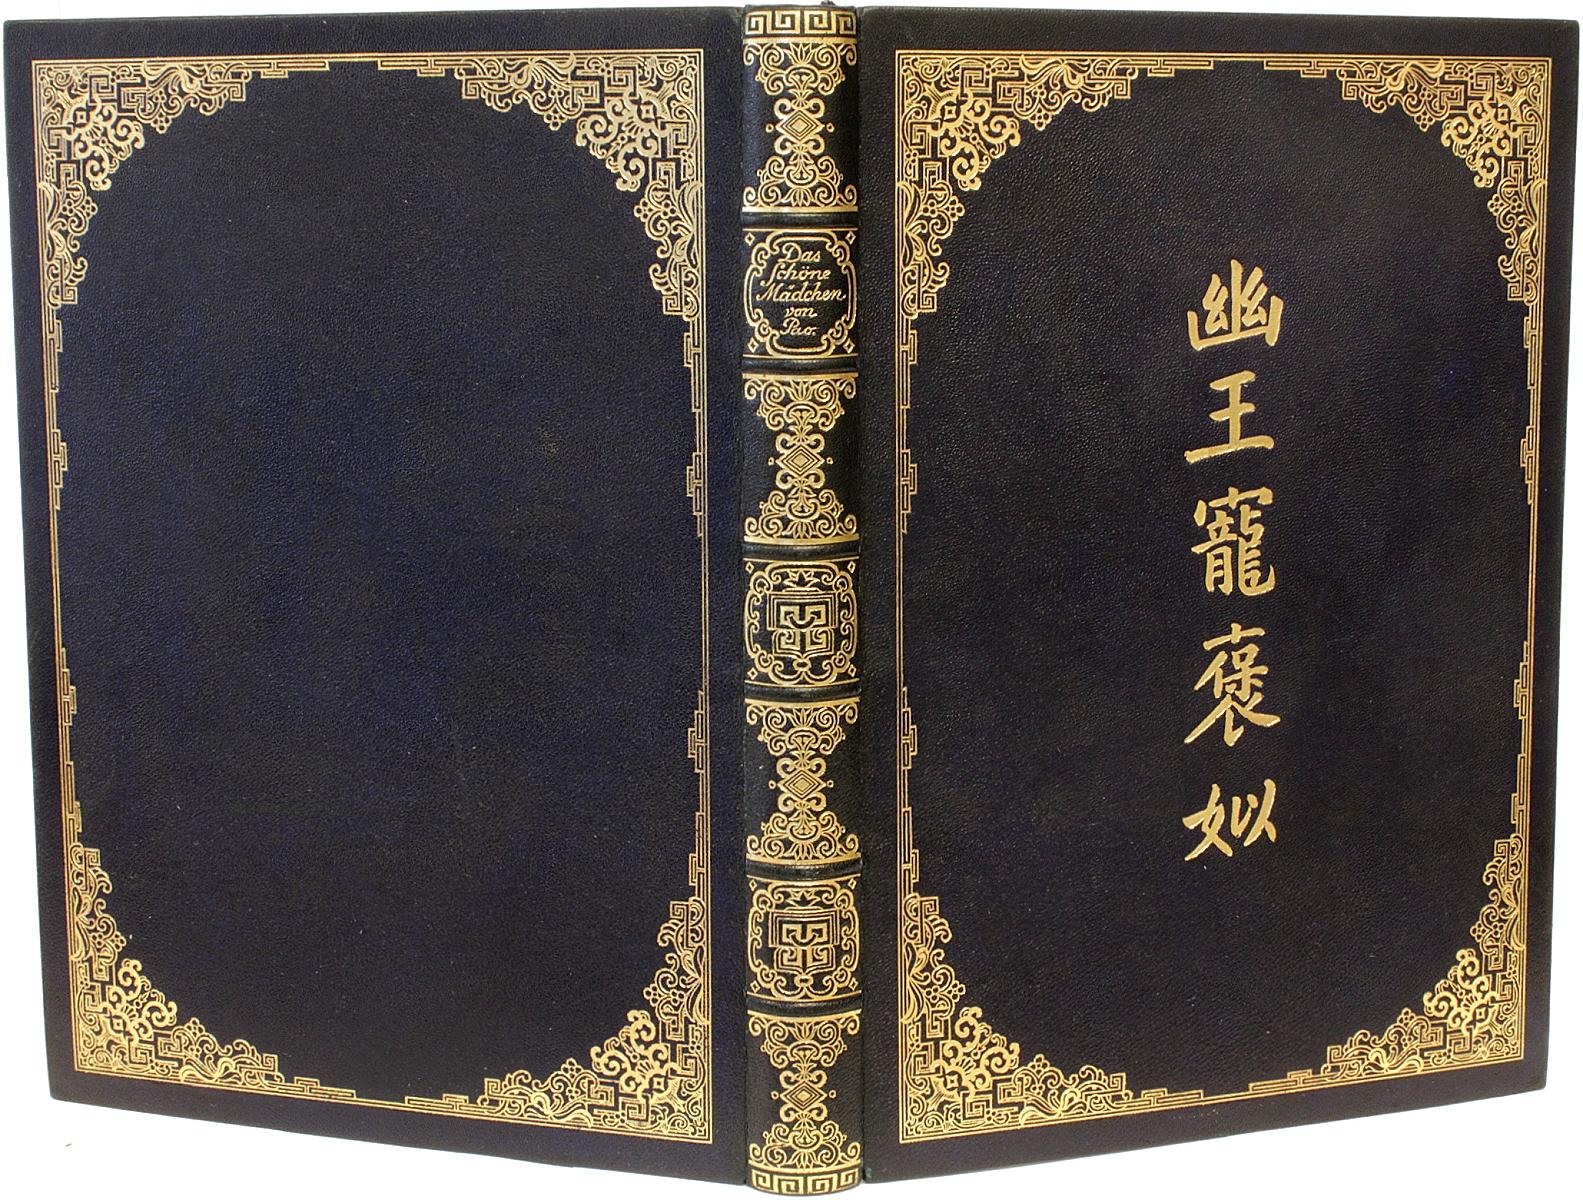 Das
schöne
Mädchen
von
Pao.
幽王寵褒姒